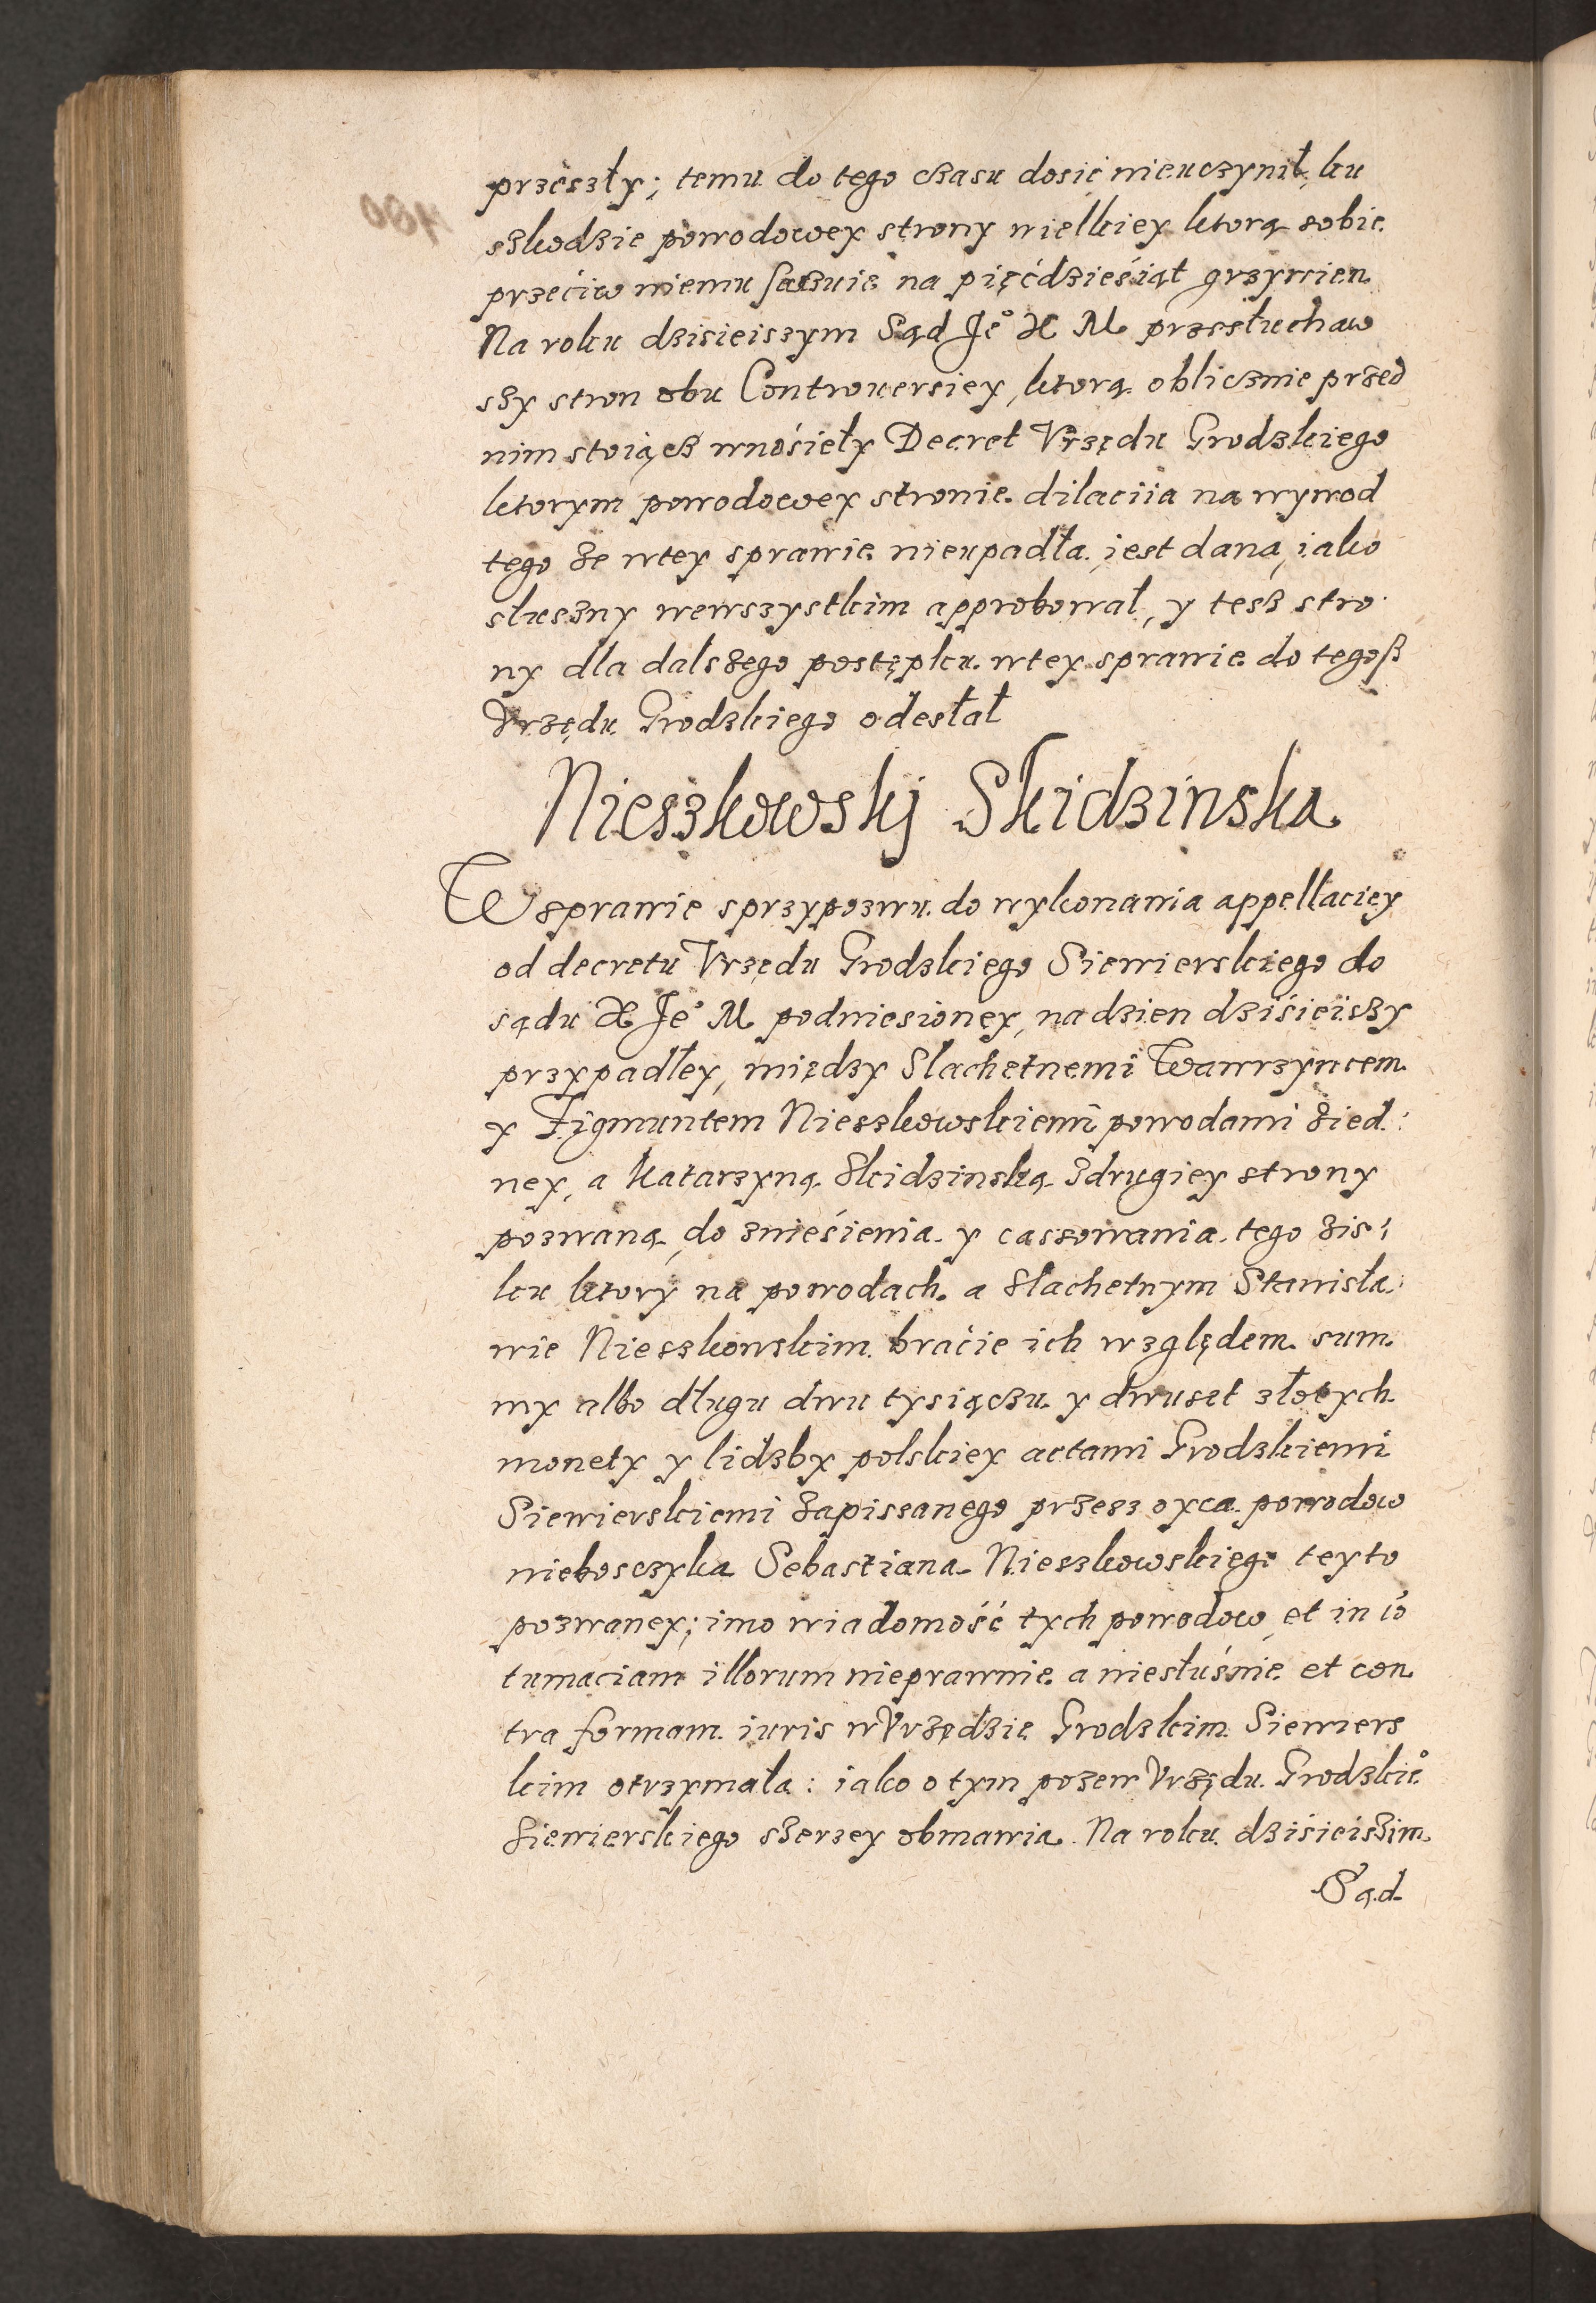 przeszły; temu do tego czasu dosić nieuczynił, ku
szkodzie powodowey strony wielkiey ktorą sobie
przeciw niemu szacuie na pięćdzieśiąt grzywien
Na roku dzisieiszym Sąd Je° X M przesłuchaw
szy stron obu Controuersiey, ktorą oblicznie przed
nim stoiącz wnośieły Decret Vrzędu Grodzkiego
ktorym powodowey stronie dilaciia na wywod
tego że wtey sprawie nieupadła iest dana, iako
słuszny wewszystkim approbował, y tesz stro
ny dla dalszego postępku wtey sprawie do tegoß
Vrzędu Grodzkiego odesłał
Nieszkowskj Skidzinska
W sprawie sprzypozwu do wykonania appellaciey
od decretu Vrzędu Grodzkiego Siewierskiego do
sądu X Je° M podniesioney, na dzien dziśieiszy
przypadłey, między Slachetnemi Wawrzyncem
y Zigmuntem Nieszkowskiemi powodami zied:
ney, a Katarzyną Skidzinską zdrugiey strony
pozwaną, do znieśienia y cassowania tego zis:
ku ktory na powodach a Slachetnym Stanisła:
wie Nieszkowskim bracie ich względem sum
my albo długu dwu tysiączu y dwuset złotych
monety y lidzby polskiey actami Grodzkiemi
Siewierskiemi zapissanego przesz oyca powodow
nieboszczyka Sebastiana Nieszkowskiego teyto
pozwaney; imo wiadomość tych powodow, et in cō
tumaciam illorum nieprawnie a niesłuśnie et con
tra formam iuris w Vrzędzie Grodzkim Siewiers
kim otrzymała: iako o tym pozew Vrzędu Grodzkie°
Siewierskiego szerzey obmawia. Na roku dziśieiszim
Sąd